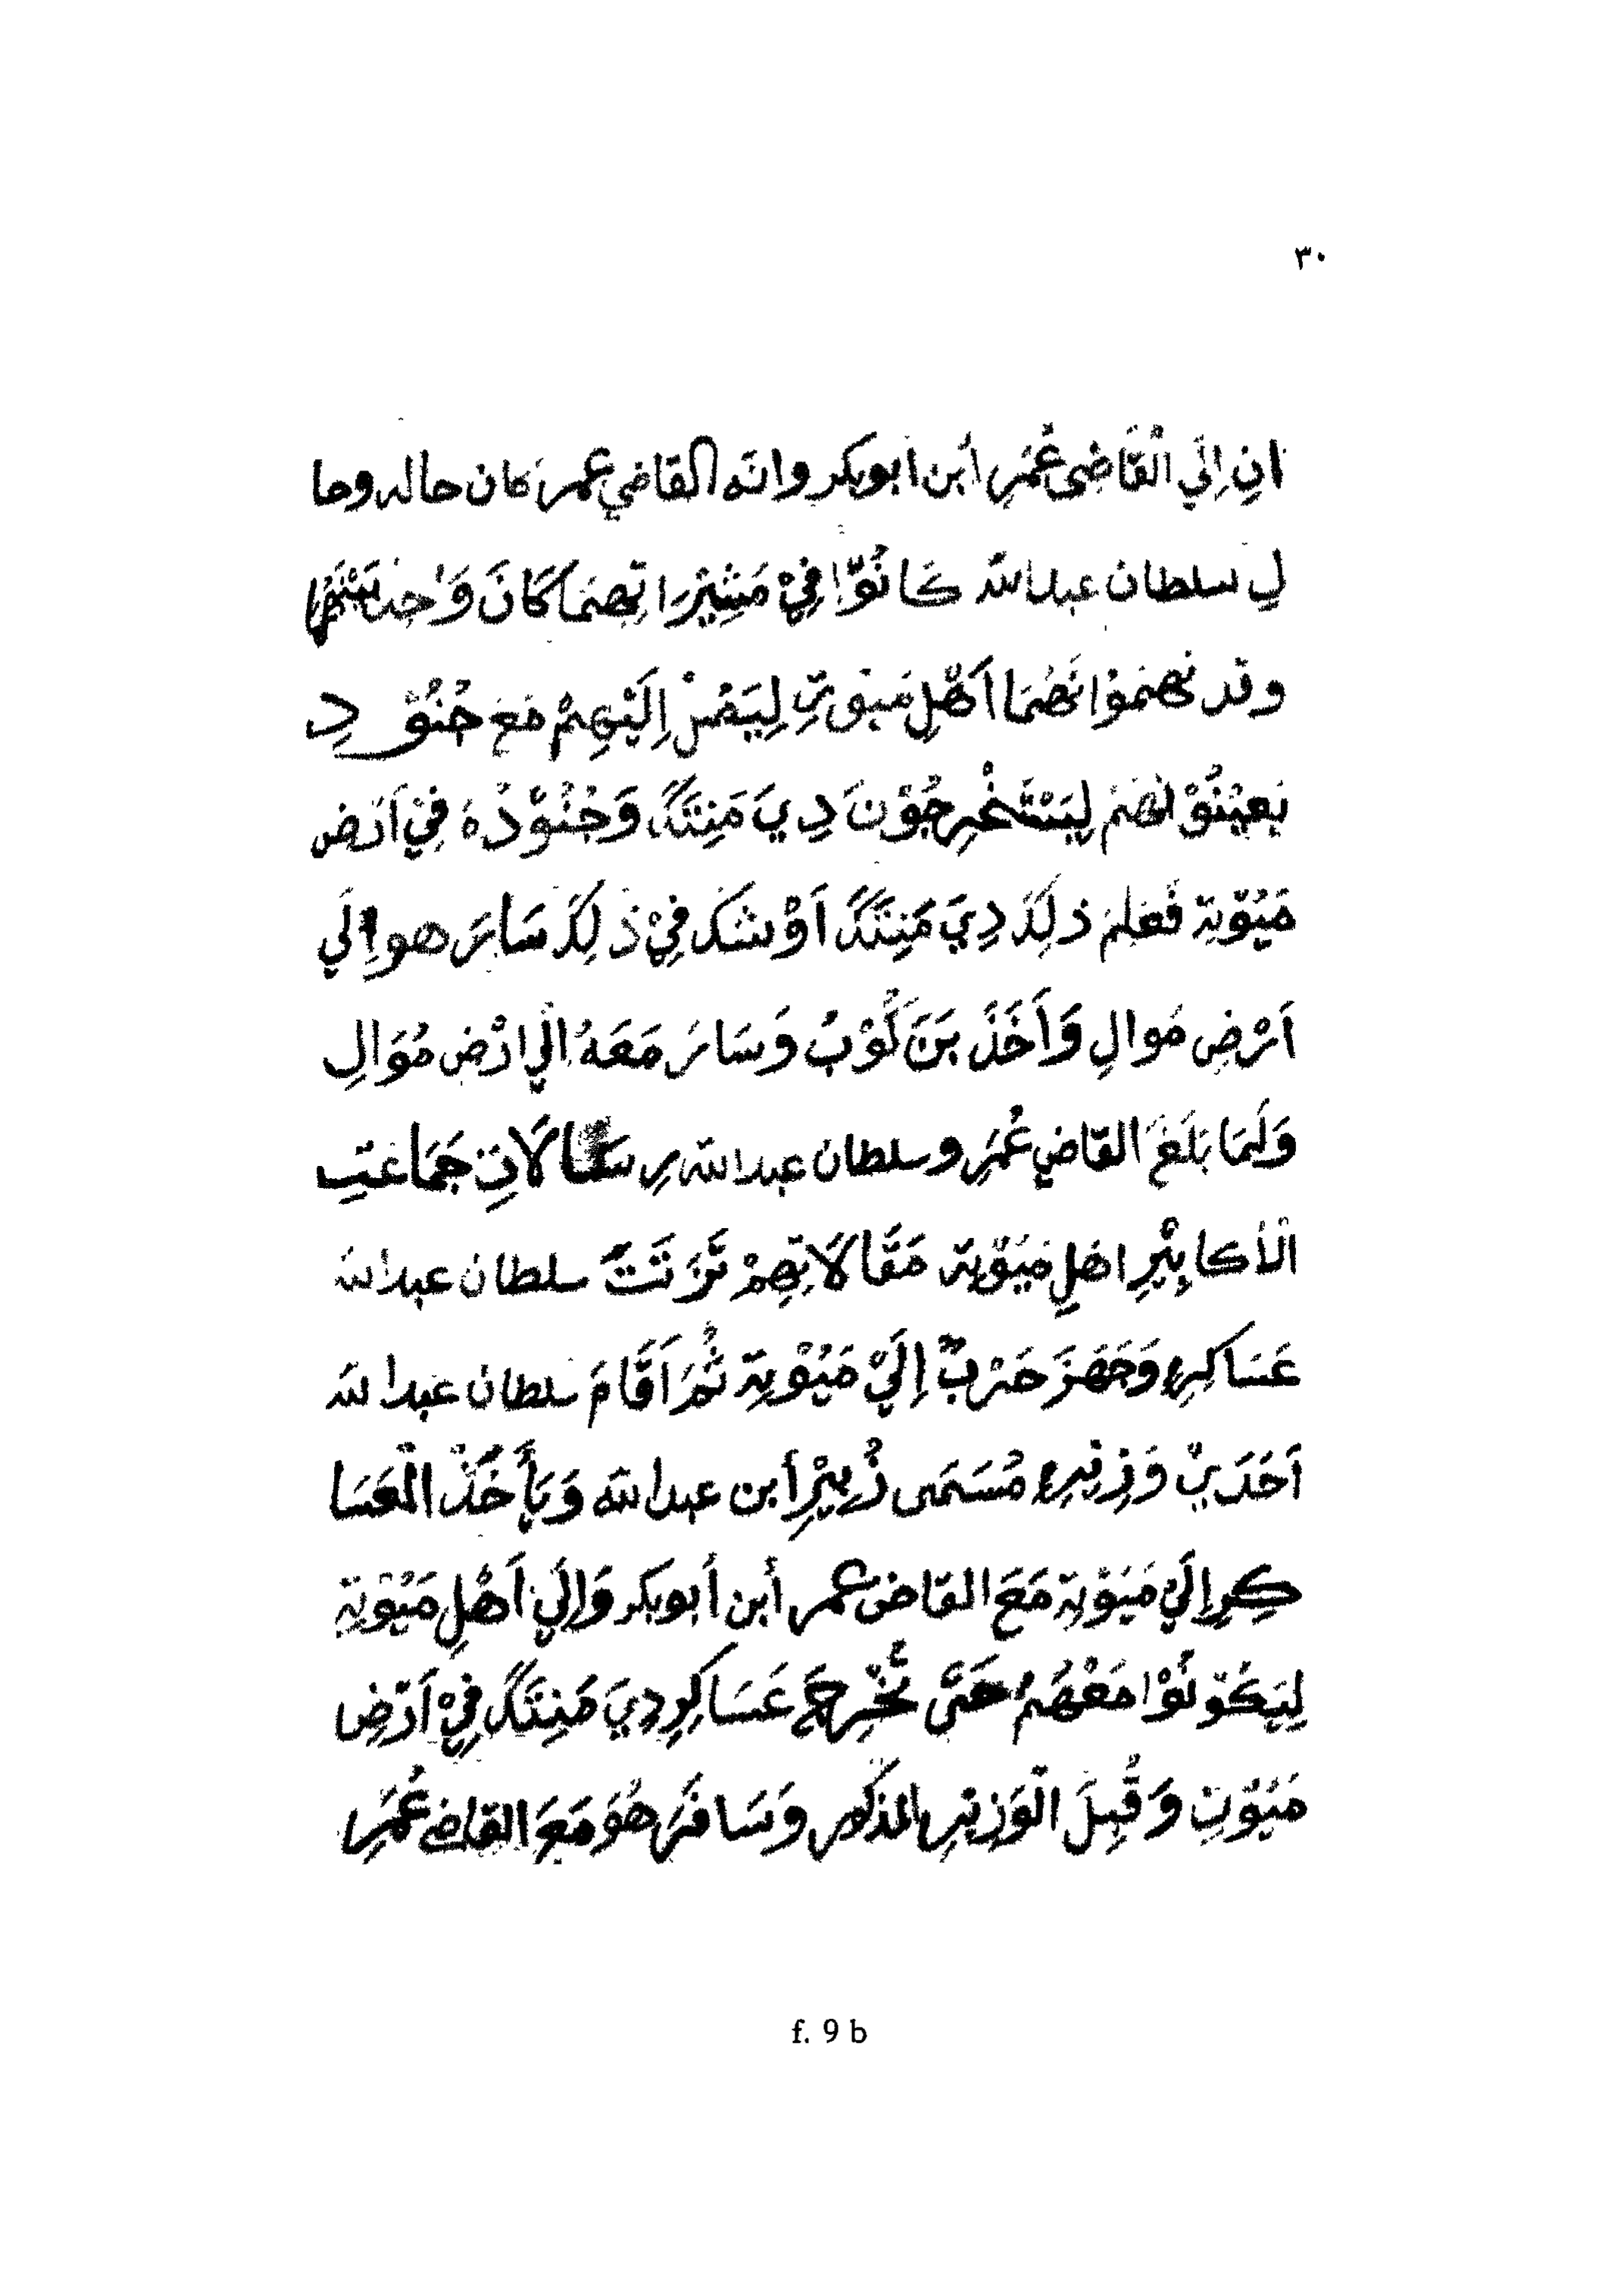 ٣٠
انِ إِلَي الْقَاضِى عُمَرِ أبن أبوبكر وانّه القاضي عمرَ كان حاله وحا
لِ سلطان عبد الله كَانُوْا فِيْ مَشِيْرَاتِهِمَا كَانَ وَاحِد
وقد نهمَوْا نَهُمَا اَهْلِ مَيُوتِةِ لِيَمُرْ اِلَيْهِمْ مَعَ جُنُوْدِ
يَعِيْنُوْا لَهُمْ لِيَسْتَخْرِجُوْنَ دِيَ مَنِتَكَ وَجُنُوْدُهُ فِيْ اَرْض
مَيُوْتِة فَعَلِمَ ذلِكَ دِيَ مَنِتَكَ اَوْ شَكَ فِيْ ذَلِكَ سَارَ هو إِلَي
اَرْضِ مَوالِ وَاَخَذَ بَنَ كُوْبُ وَسَارَ مَعَهُ الَي ارْض مُوَالِ
وَلَمَا بَلَغَ القاضي عُمَرِ وسلطان عبد الله رِسَالَاتِ جَمَاعَتِ
الْأكَابِيْرِ اهْلِ مَيُوْتِة مَقَالَاتِهِمْ تَرَتَتَ سلطان عبد الله
عَسَاكِرِهِ وَجَهَزَ حَرْبٌ إِلَيْ مَيُوْتِة ثُمَ اَقَامَ سلطان عبد الله
اَحَدَيْ وَزِيْرِهِ مُسَمَى زُبِيْرِ أبن عبد الله وَيَأْخَذْ الْعَسَا
كِرِ إِلَي مَيُوْتِة مَعَ القاضى عمر أبن أبوبكر وَإِلَي اَهْلِ مَيُوْتِة
لِيَكُوْنُوْا مَعْهُمْ حَتَى تُخْرِجَ عَسَاكِرِ دِيَ مَنِتَكَ فِيْ اَرْضِ
مَيُوْتِ وَقُبِلَ الْوَزِيْرِ المذكور وَسَافَرَ هُوَ مَعَ القاضي عُمَرِ
f. 9 b